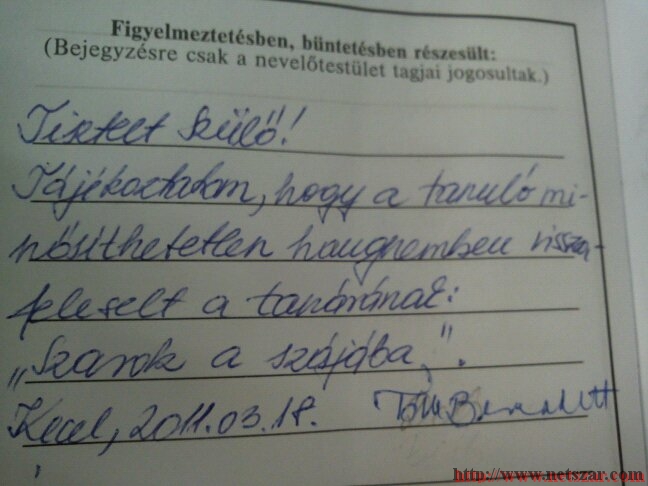 Figyelmeztetésben, büntetésben részesült:
(Bejegyzésre csak a nevelőtestület tagjai jogosultak.)
Tisztelt Szülő!
Tájékoztatom, hogy a tanuló mi-
nősíthetetlen hangnemben vissza-
feleselt a tanárának:
„Szarok a szájába”.
Kecel, 2011.03.18.
http://www.netszar.com